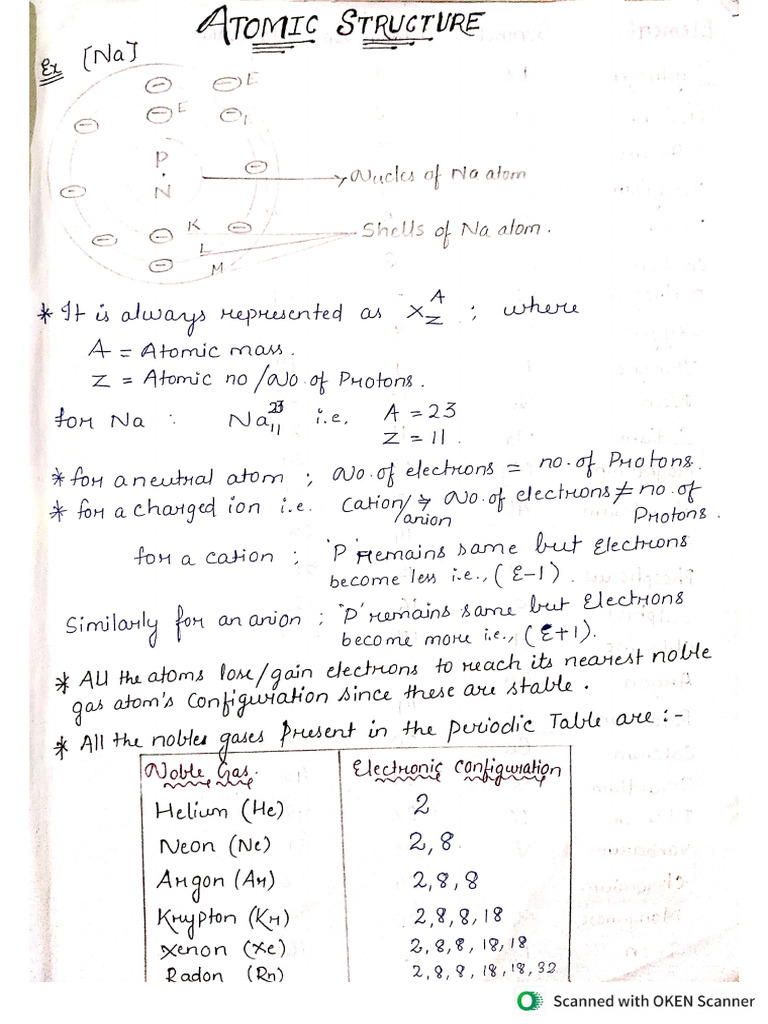 ATOMIC STRUCTURE
Ex [Na]
E
E
P
N
Nucles of Na atom
K
L
M
Shells of Na atom.
* It is always represented as X^A_Z ; where
A = Atomic mass.
Z = Atomic no/No. of Protons.
for Na : Na^23_11 i.e. A = 23
Z = 11.
* for a neutral atom ; No. of electrons = no. of Protons.
* for a charged ion i.e. Cation/anion → No. of electrons ≠ no. of
Protons.
for a cation ; 'P' remains same but Electrons
become less i.e., (E-1).
Similarly for an anion ; 'P' remains same but Electrons
become more i.e., (E+1).
* All the atoms lose/gain electrons to reach its nearest noble
gas atom's configuration since these are stable.
* All the nobles gases Present in the Periodic Table are :-
Noble Gas. Electronic Configuration
Helium (He) 2
Neon (Ne) 2,8.
Argon (Ar) 2,8,8
Krypton (Kr) 2,8,8,18
Xenon (Xe) 2,8,8,18,18
Radon (Rn) 2,8,8,18,18,32
Scanned with OKEN Scanner